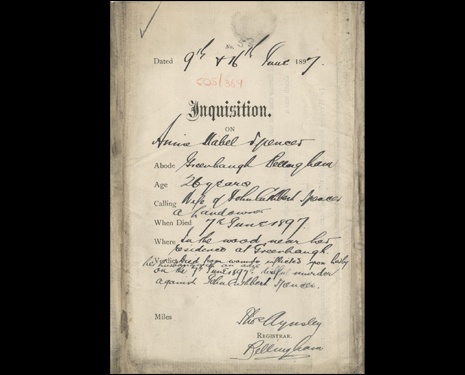 No. 52
Dated 9th & 16th June 1897.
COS/364
Inquisition.
ON
Annie Mabel Spencer
Abode Greenhaugh Bellingham
Age 26 years
Calling Wife of John Cuthbert Spencer
a Landowner
When Died 7th June 1897.
Where In the wood near her
residence at Greenhaugh
Verdict died from wounds inflicted upon her by
her husband with an
on the 7th June 1897. Wilful murder
against John Cuthbert Spencer.
Miles
Thos Aynsley
REGISTRAR.
Bellingham